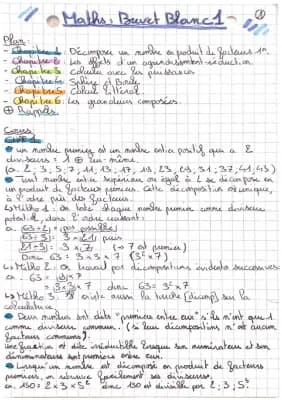 Maths : Brevet Blanc 1 ①
Plan :
- Chapitre 1 : Décomposer un nombre en produit de facteurs 1ers
- Chapitre 2 : Les effets d'un agrandissement-réduction.
- Chapitre 3 : Calculer avec les puissances
- Chapitre 4 : Sphère et Boule.
- Chapitre 5 : Calcul littéral.
- Chapitre 6 : Les grandeurs composées.
⊕ Rappels.
Cours
CHP 1
• un nombre premier est un nombre entier positif qui a 2
diviseurs : 1 ⊕ lui-même.
(ex. 2 ; 3 ; 5 ; 7 ; 11 ; 13 ; 17 ; 19 ; 23 ; 29 ; 31 ; 37 ; 41 ; 43)
• Tout nombre entier supérieur ou égal à 2 se décompose en
un produit de facteurs premiers. Cette décomposition est unique,
à l'ordre près des facteurs.
↳ Métho 1 : On teste chaque nombre premier comme diviseur
potentiel, dans l'ordre croissant :
ex. 63÷2 : (pas possible)
63÷3 : 3 × 21 puis
21÷3 : 3 × 7 (→ 7 est premier)
Donc 63 = 3 × 3 × 7 (3² × 7)
↳ Métho 2 : On travail par décompositions évidentes successives :
ex. 63 = 9 × 7
= 3 × 3 × 7 donc 63 = 3² × 7
↳ Métho 3 : Il existe aussi la touche (décomp) sur la
calculatrice.
• Deux nombres sont dits "premiers entre eux" s'ils n'ont que 1
comme diviseur commun. (si leur décompositions n'ont aucun
facteurs communs).
Une fraction est dite irréductible lorsque son numérateur et son
dénominateur sont premiers entre eux.
• Lorsqu'un nombre est décomposé en produit de facteurs
premiers, on retrouve facilement ses diviseurs.
ex. 150 = 2 × 3 × 5² donc 150 est divisible par 2 ; 3 ; 5²